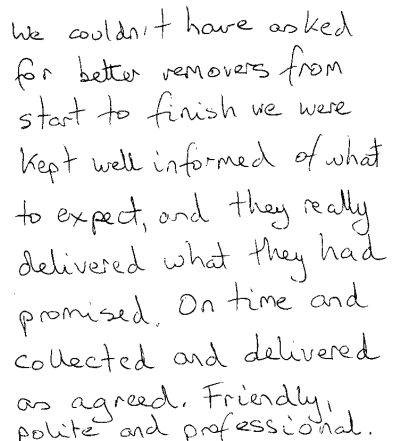 We couldn't have asked
for better removers from
start to finish we were
kept well informed of what
to expect, and they really
delivered what they had
promised. On time and
collected and delivered
as agreed. Friendly,
polite and professional.